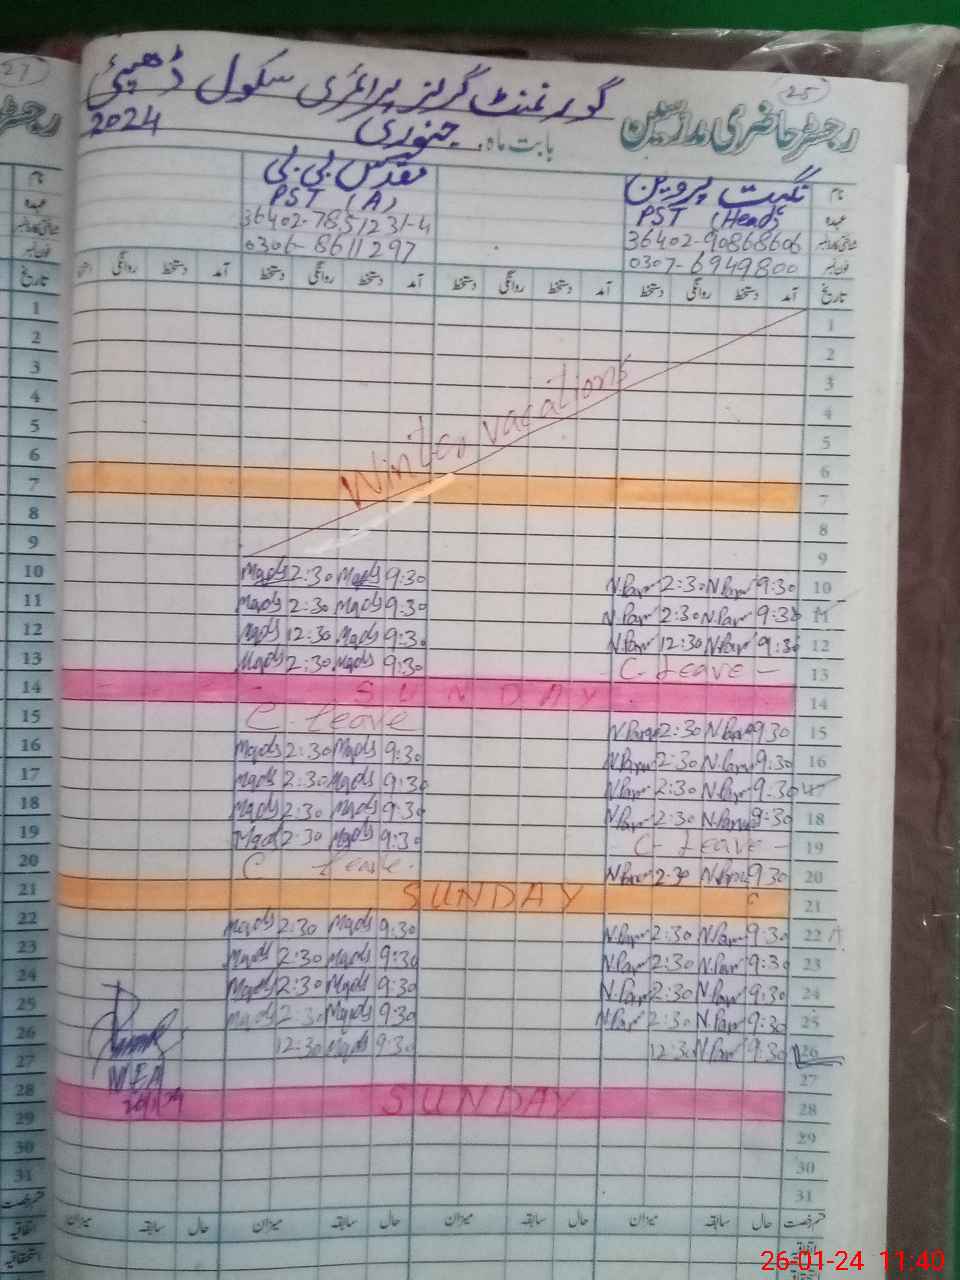 27
25
گورنمنٹ گرلز پرائمری سکول ڈھپئی
رجسٹر حاضری مدرسین
بابت ماہ جنوری 2024
نام نگہت پروین مقدس بی بی
عہدہ PST (Head) PST (A)
36402-90868606 36402-7851231-4
فون نمبر 0307-6949800 0306-8611297
تاریخ آمد دستخط روانگی دستخط آمد دستخط روانگی دستخط آمد دستخط روانگی دستخط آمد روانگی
1
2
3
4
5
6
7
8
9
Winter vacations
Maqds 2:30 Maqds 9:30 N.Parv 2:30 N.Parv 9:30 10
Maqds 2:30 Maqds 9:30 N.Parv 2:30 N.Parv 9:30 11
Maqds 12:30 Maqds 9:30 N.Parv 12:30 N.Parv 9:30 12
Maqds 2:30 Maqds 9:30 C-Leave - 13
SUNDAY 14
C-Leave N.Parv 2:30 N.Parv 9:30 15
Maqds 2:30 Maqds 9:30 N.Parv 2:30 N.Parv 9:30 16
Maqds 2:30 Maqds 9:30 N.Parv 2:30 N.Parv 9:30 17
Maqds 2:30 Maqds 9:30 N.Parv 2:30 N.Parv 9:30 18
Maqds 2:30 Maqds 9:30 - C-Leave - 19
C Leave. N.Parv 2:30 N.Parv 9:30 20
SUNDAY 21
Maqds 2:30 Maqds 9:30 N.Parv 2:30 N.Parv 9:30 22
Maqds 2:30 Maqds 9:30 N.Parv 2:30 N.Parv 9:30 23
Maqds 2:30 Maqds 9:30 N.Parv 2:30 N.Parv 9:30 24
Maqds 2:30 Maqds 9:30 N.Parv 2:30 N.Parv 9:30 25
12:30 Maqds 9:30 12:30 N.Parv 9:30 26
27
MEA
26/1/24
SUNDAY 28
29
30
31
ختم رخصت حال سابقہ میزان حال سابقہ میزان حال سابقہ میزان حال سابقہ میزان
اتفاقیہ
استحقاقیہ
26-01-24 11:40